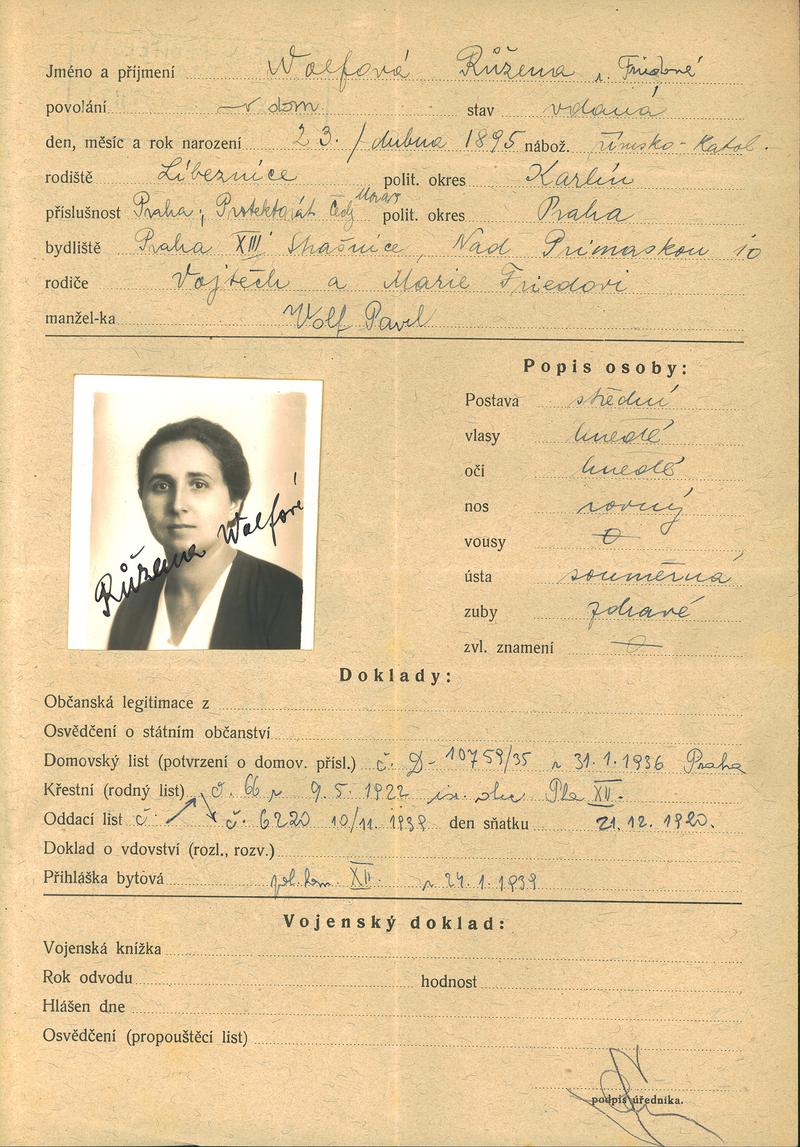 Jméno a příjmení Wolfová Růžena r. Friedové
povolání v dom. stav vdaná
den, měsíc a rok narození 23./dubna 1895 nábož. římsko-katol.
rodiště Líbeznice polit. okres Karlín
příslušnost Praha, Protektorát Čechy Morav polit. okres Praha
bydliště Praha XIII Strašnice, Nad Primaskou 10
rodiče Vojtěch a Marie Friedovi
manžel-ka Wolf Pavel
Popis osoby:
Postava střední
vlasy hnedé
oči hnedé
nos rovný
vousy 0
ústa souměrná
zuby zdravé
zvl. znamení 0
Růžena Wolfová
Doklady:
Občanská legitimace z
Osvědčení o státním občanství
Domovský list (potvrzení o domov. přísl.) č. D-10759/35 z 31.1.1936 Praha
Křestní (rodný list) č. 66 z 9.5.1922 isr. obec XII.
Oddací list č. č. 6220 10/11.1939 den sňatku 21.12.1920.
Doklad o vdovství (rozl., rozv.)
Přihláška bytová pol. kom. XII. z 24.1.1939
Vojenský doklad:
Vojenská knížka
Rok odvodu hodnost
Hlášen dne
Osvědčení (propouštěcí list)
podpis úředníka.